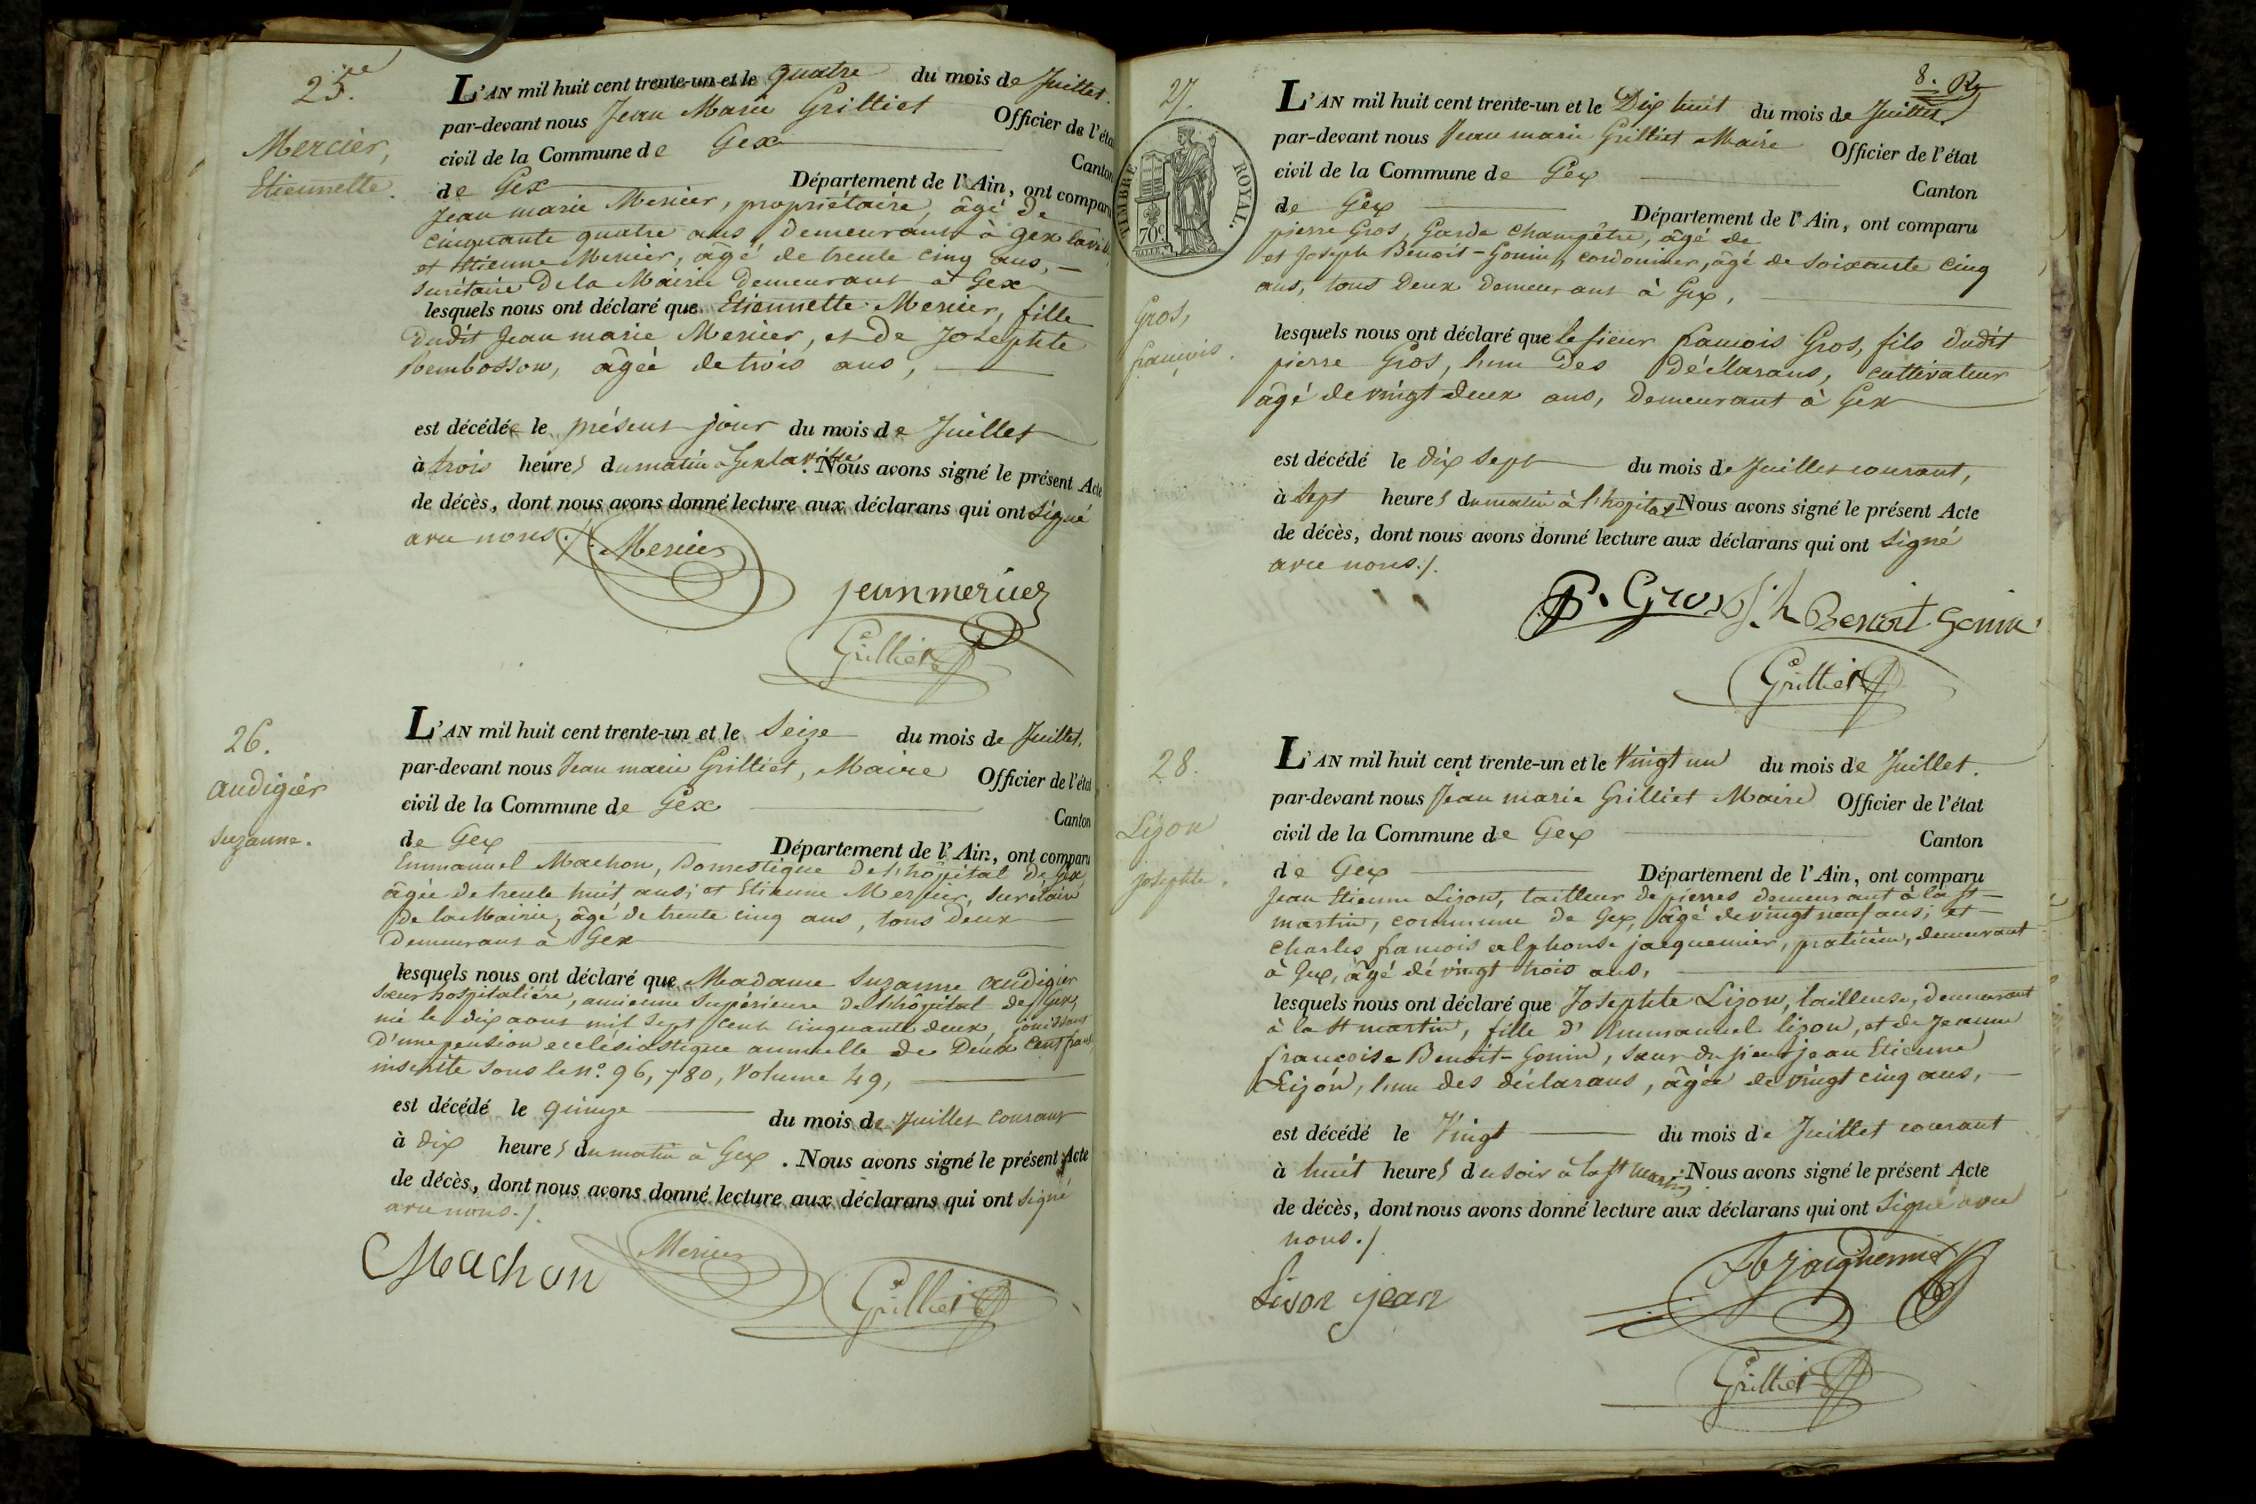 25e
Mercier,
Etiennette.
L'AN mil huit cent trente-un et le quatre du mois de Juillet.
par-devant nous Jean Marie Grilliet Officier de l'état
civil de la Commune de Gex Canton
de Gex Département de l'Ain, ont comparu
Jean marie Mercier, propriétaire, âgé de
cinquante quatre ans, demeurant à gex la ville
et Etienne Mercier, âgé de trente cinq ans,
secrétaire De la Mairie demeurant à Gex
lesquels nous ont déclaré que Etiennette Mercier, fille
dudit Jean marie Mercier, et De Josephte
Rembosson, âgée de trois ans,
est décédée le présent jour du mois de Juillet
à trois heures du matin à Gex la ville. Nous avons signé le présent Acte
de décès, dont nous avons donné lecture aux déclarans qui ont signé
avec nous./.
Mercier
jean mercier
Grilliet
26.
audigier
suzanne.
L'AN mil huit cent trente-un et le Seize du mois de Juillet.
par-devant nous Jean marie Grilliet, Maire Officier de l'état
civil de la Commune de Gex Canton
de Gex Département de l'Ain, ont comparu
Emmanuel Machon, Domestique de l'hôpital de Gex
âgée de trente huit ans; et Etienne Mercier, secrétaire
De la Mairie, âgé de trente cinq ans, tous deux
demeurans à Gex
lesquels nous ont déclaré que Madame Suzanne audigier
sœur hospitalière, ancienne supérieure De l'hôpital de Gex,
née le dix aout mil sept cent cinquante deux, jouissant
D'une pension ecclésiastique annuelle de Deux cent francs
inscrite sous le n.° 96,780, Volume 49,
est décédé le quinze du mois de Juillet courant
à dix heures du matin à Gex. Nous avons signé le présent Acte
de décès, dont nous avons donné lecture aux déclarans qui ont signé
avec nous./.
Machon
Mercier
Grilliet
8.
27.
TIMBRE ROYAL.
70c
Gros,
françois.
L'AN mil huit cent trente-un et le Dix huit du mois de Juillet.
par-devant nous Jean marie Grilliet Maire Officier de l'état
civil de la Commune de Gex Canton
de Gex Département de l'Ain, ont comparu
pierre Gros, Garde champêtre, âgé de
et Joseph Benoit-Gonin, cordonnier, âgé de soixante cinq
ans, tous Deux demeurant à Gex,
lesquels nous ont déclaré que le sieur françois Gros, fils dudit
pierre Gros, l'un Des Déclarans, cultivateur
âgé de vingt deux ans, Demeurant à Gex
est décédé le dix sept du mois de Juillet courant,
à sept heures du matin à l'hôpital Nous avons signé le présent Acte
de décès, dont nous avons donné lecture aux déclarans qui ont signé
avec nous./.
P. Gros
Jh Benoit Gonin
Grilliet
28.
Lizon
Josephte.
L'AN mil huit cent trente-un et le Vingt un du mois de Juillet.
par-devant nous Jean marie Grilliet Maire Officier de l'état
civil de la Commune de Gex Canton
de Gex Département de l'Ain, ont comparu
Jean Etienne Lizon, tailleur de pierres demeurant à la st
martin, commune de Gex, âgé de vingt neuf ans; et
Charles françois alphonse jacquemier, praticien, demeurant
à Gex, âgé de vingt trois ans,
lesquels nous ont déclaré que Josephte Lizon, tailleuse, demeurant
à la st martin, fille d'Emmanuel lizon, et de Jeanne
françoise Benoit-Gonin, sœur du sieur jean Etienne
Lizon, l'un des déclarans, âgée de vingt cinq ans,
est décédé le Vingt du mois de Juillet courant
à huit heures du soir à la st martin Nous avons signé le présent Acte
de décès, dont nous avons donné lecture aux déclarans qui ont signé avec
nous./.
Lison jean
jacquemier
Grilliet